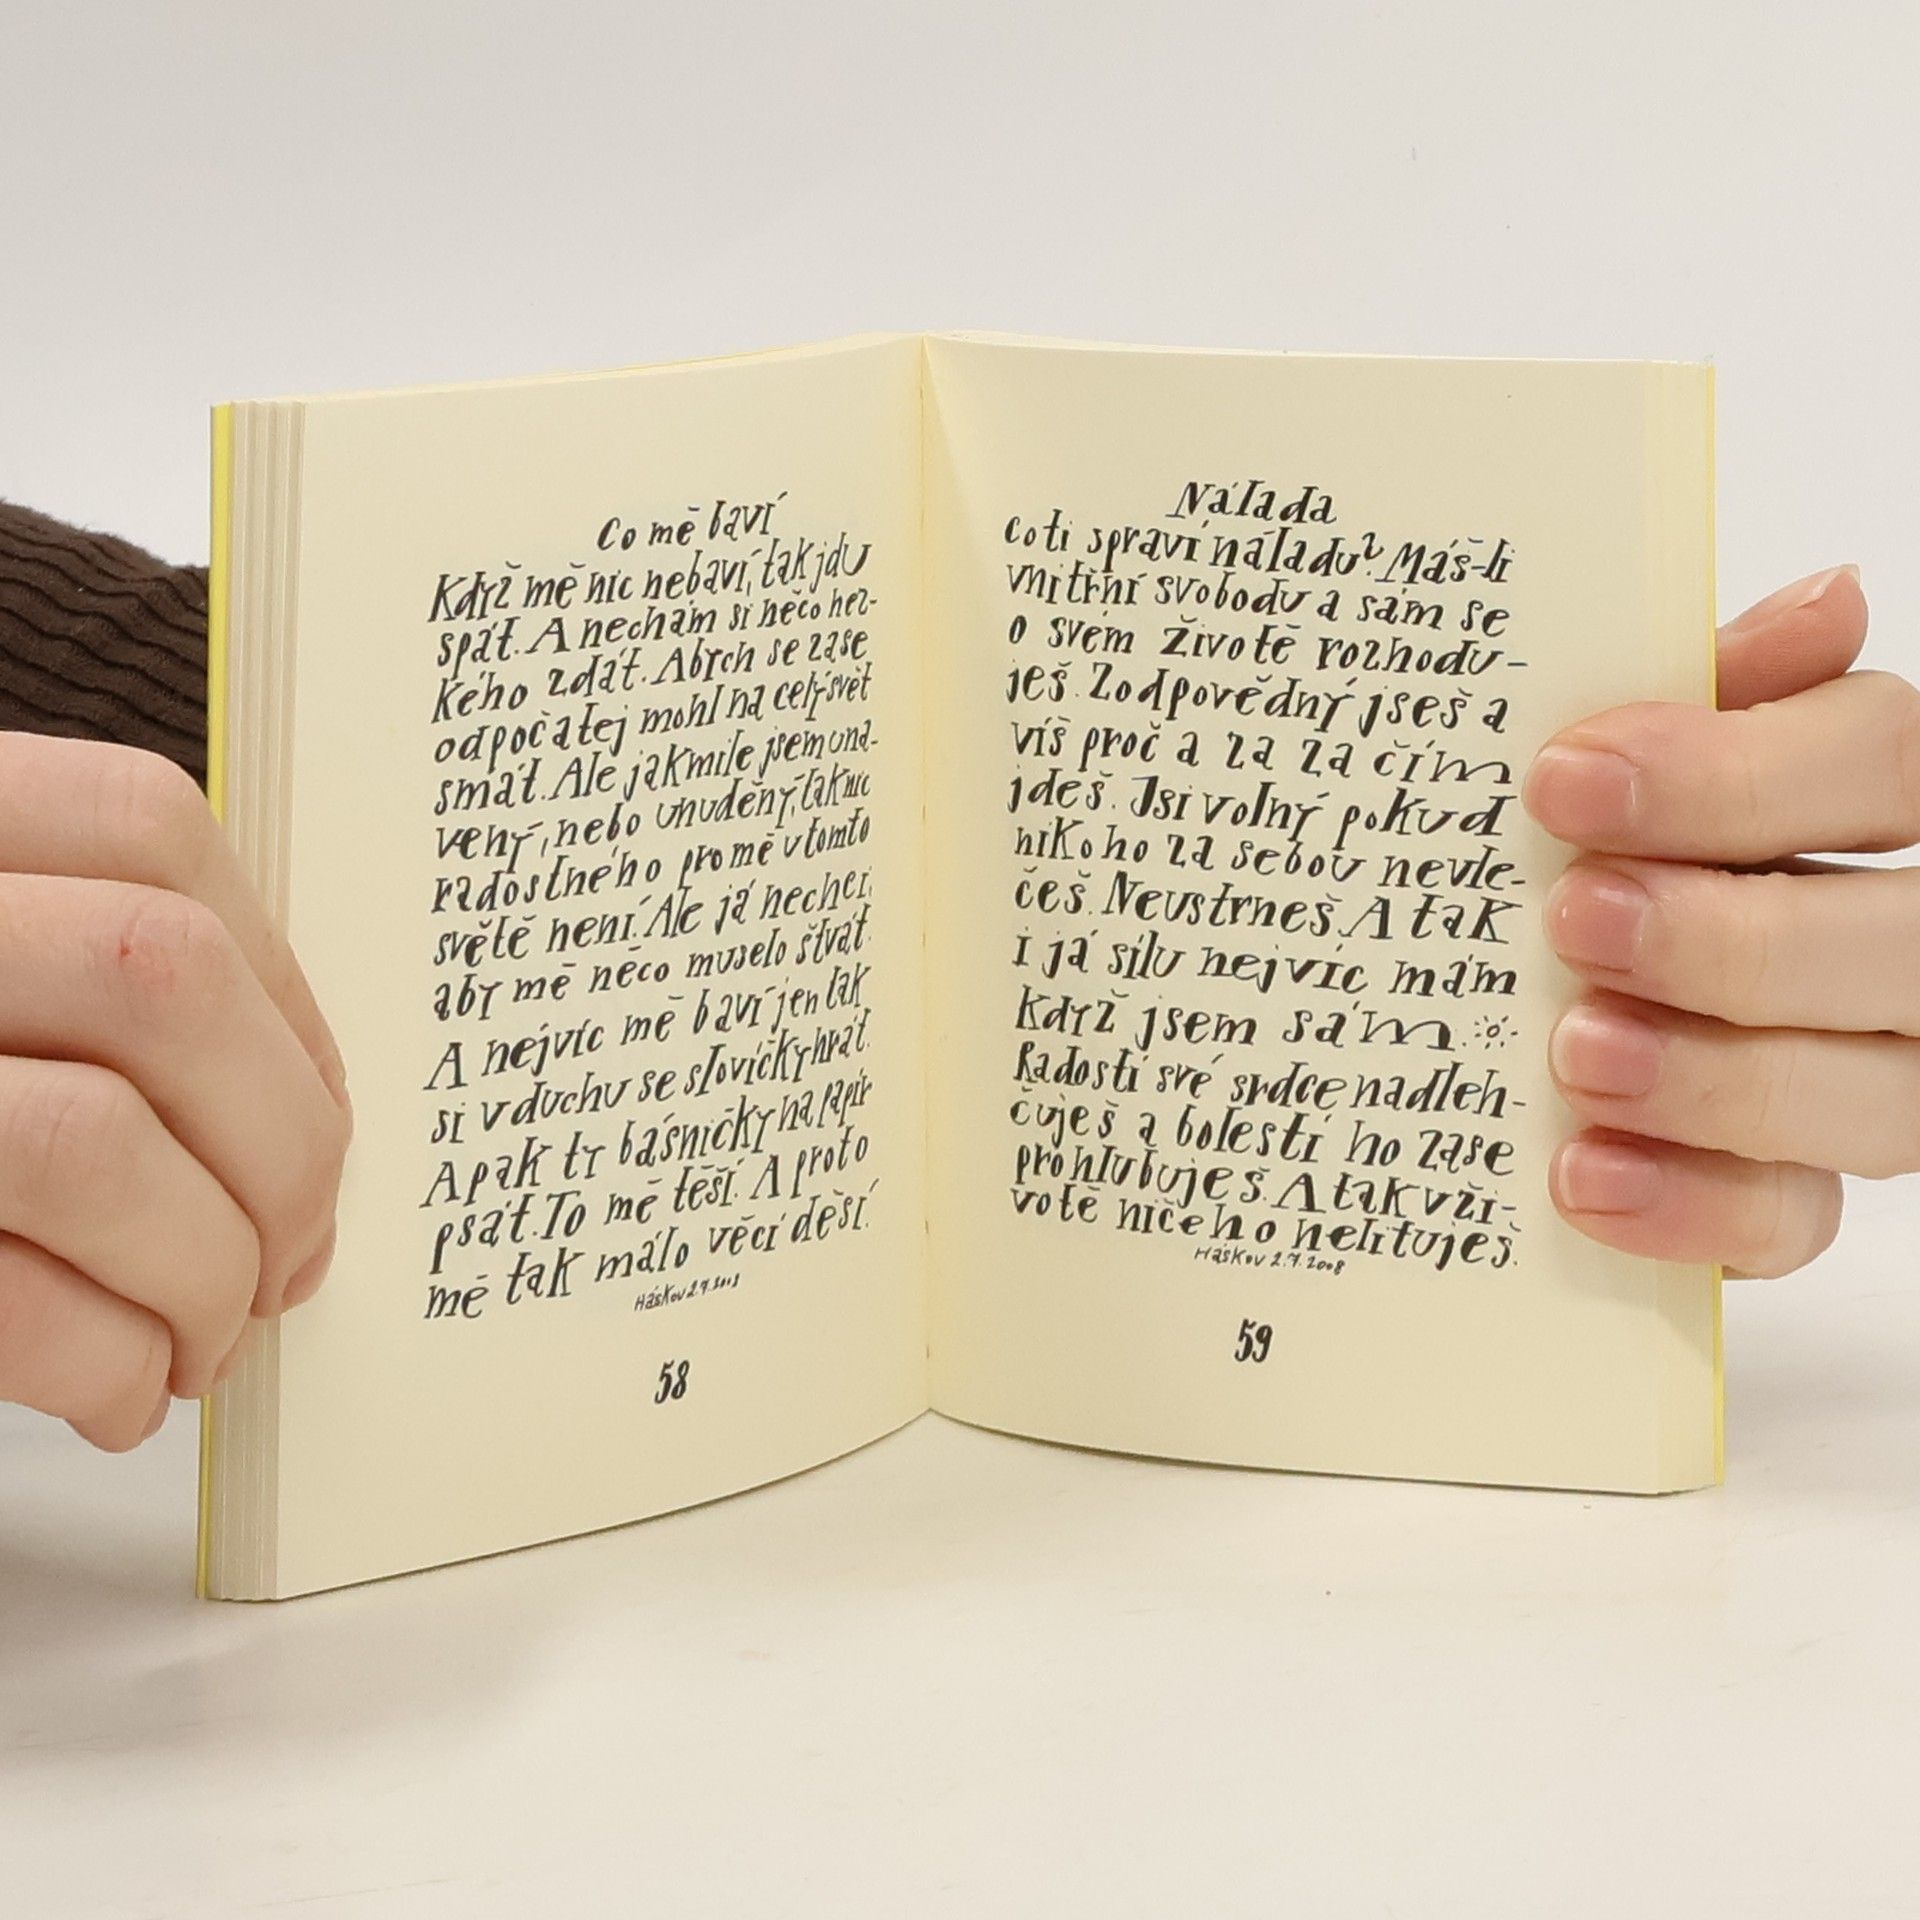 Co mě baví
Když mě nic nebaví, tak jdu
spát. A nechám si něco hez-
kého zdát. Abych se zase
odpočatej mohl na celý svět
smát. Ale jakmile jsem una-
vený, nebo unuděný, tak nic
radostného pro mě v tomto
světě není. Ale já nechci,
aby mě něco muselo štvát.
A nejvíc mě baví jen tak
si v duchu se slovíčky hrát.
A pak ty básničky na papír
psát. To mě těší. A proto
mě tak málo věcí děsí.
Háskov 2.7.
58
Nálada
Co ti spraví náladu? Máš-li
vnitřní svobodu a sám se
o svém životě rozhodu-
ješ. Zodpovědný jseš a
víš proč a za za čím
jdeš. Jsi volný pokud
nikoho za sebou nevle-
češ. Neustrneš. A tak
i já sílu nejvíc mám
Když jsem sám.
Radostí své srdce nadleh-
čuješ a bolestí ho zase
prohlubuješ. A tak v ži-
votě ničeho nelituješ.
Háskov 2.7.2008
59